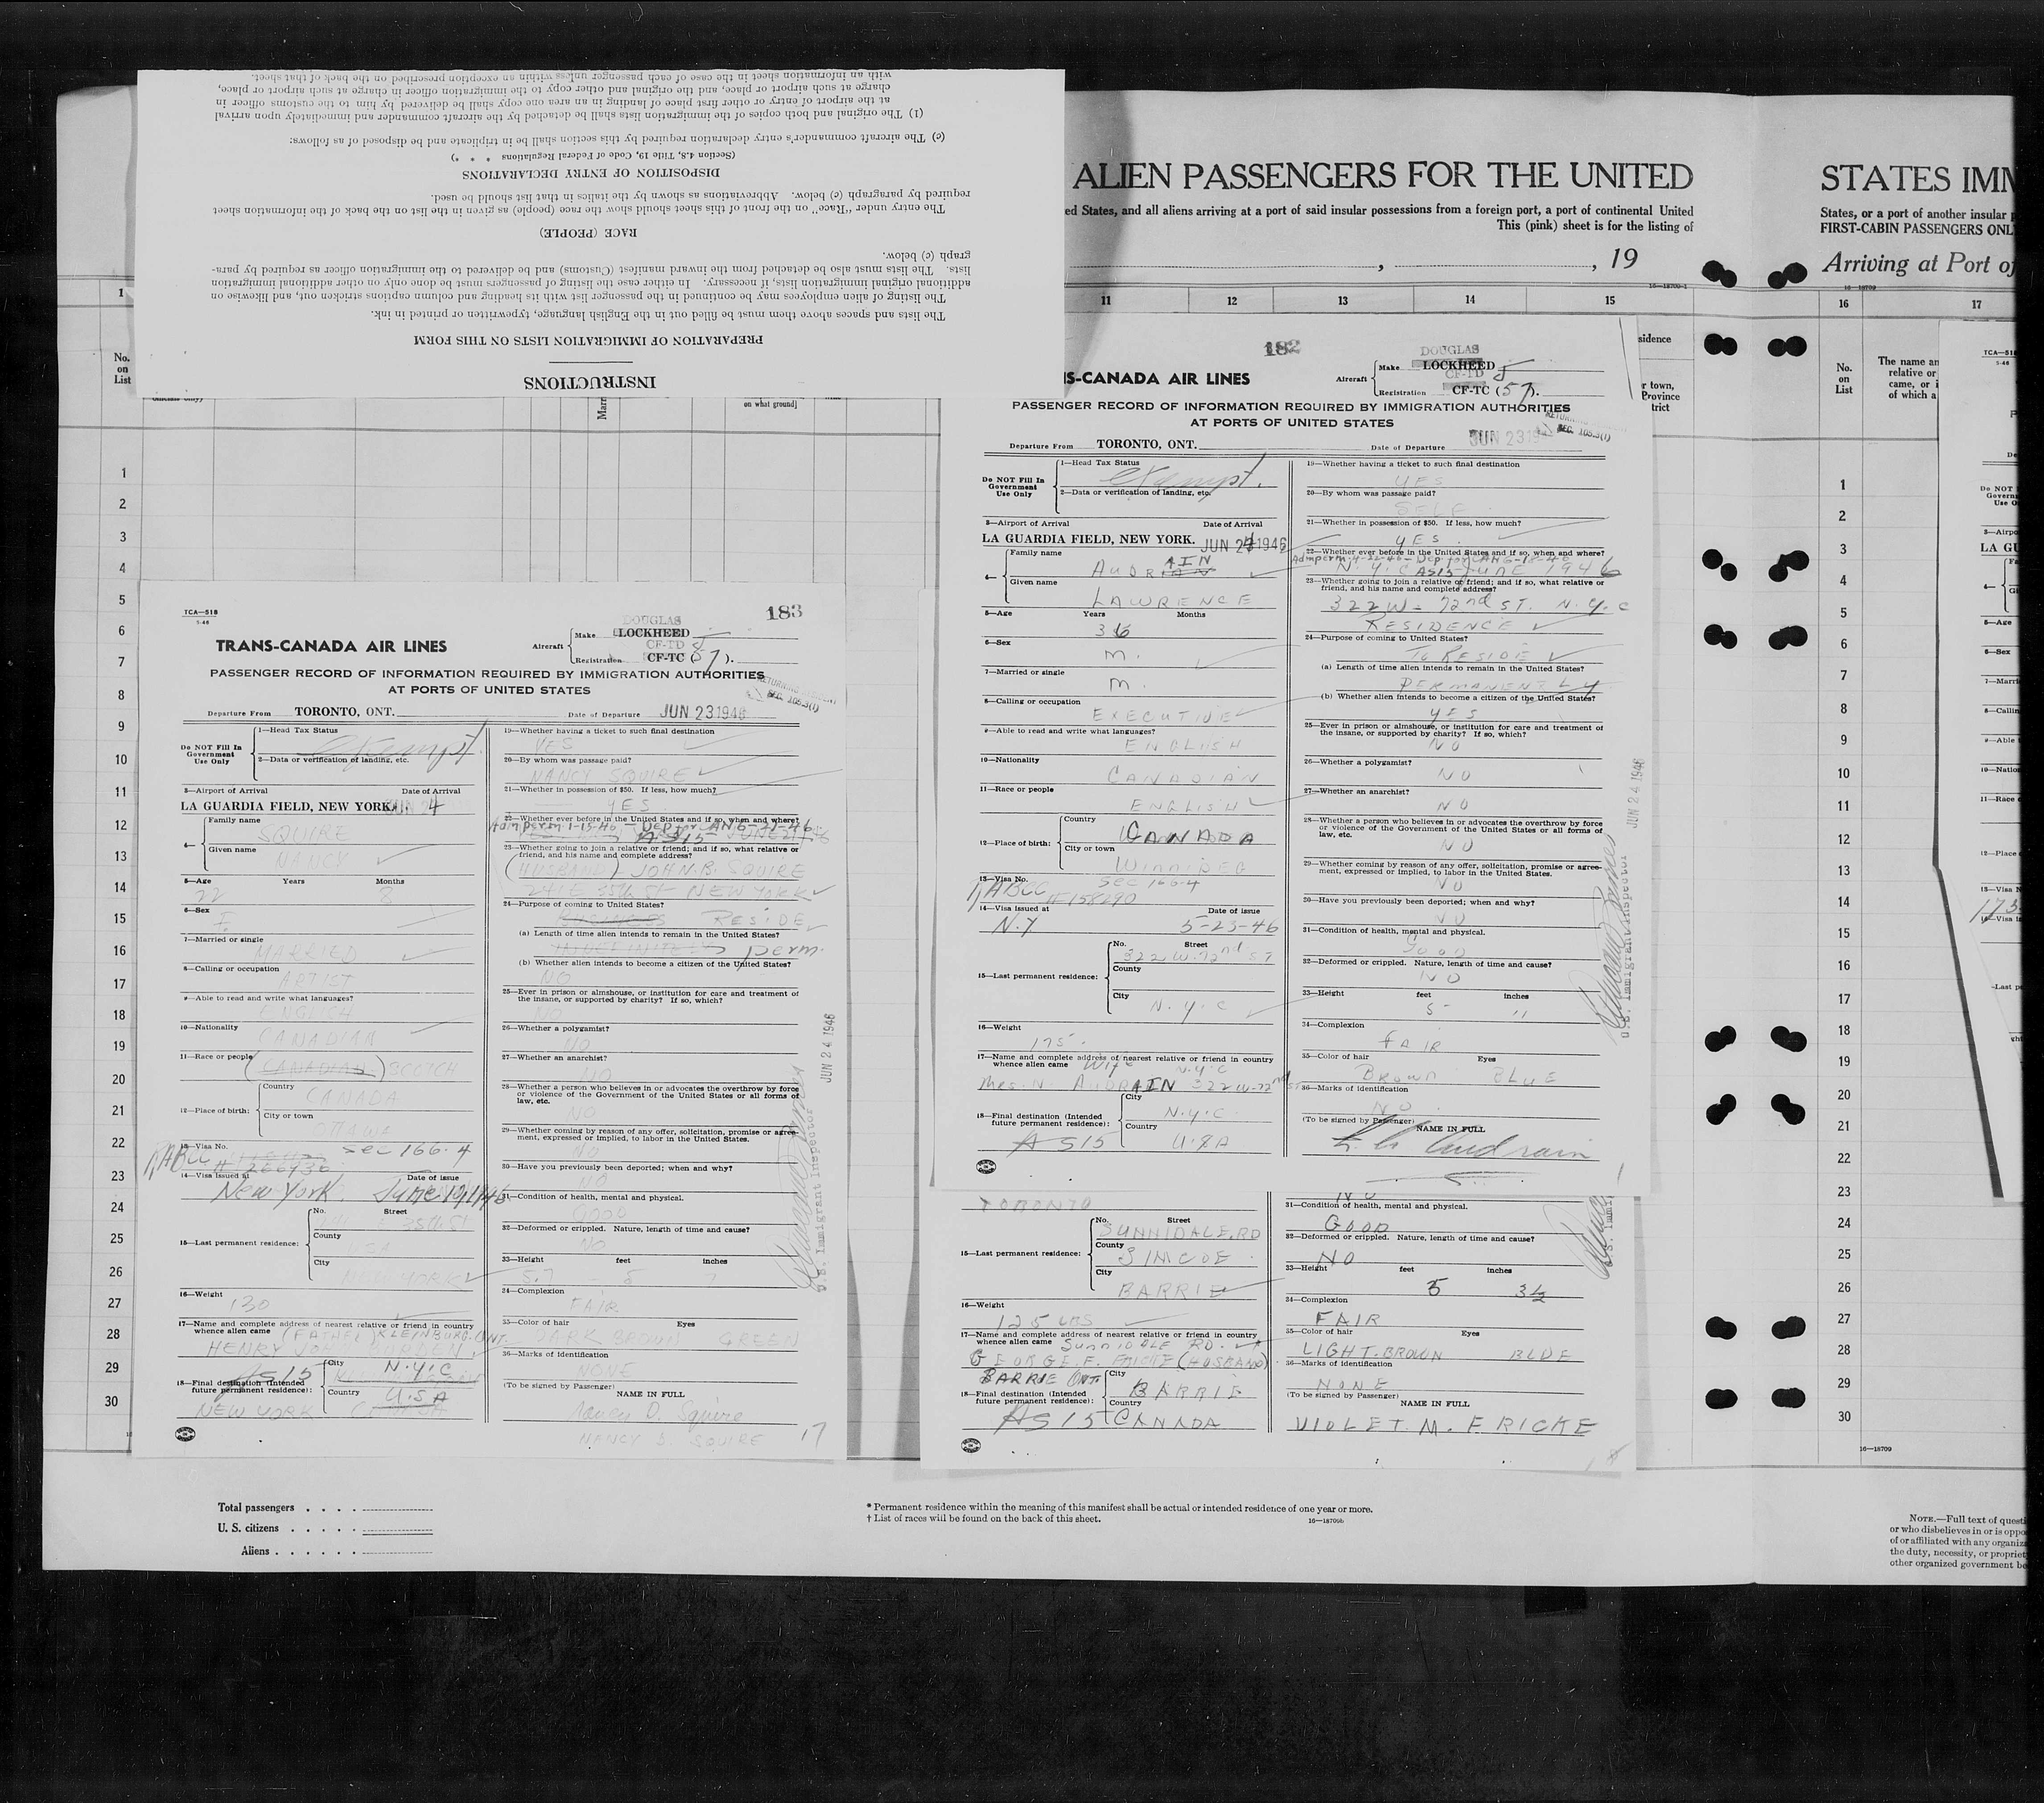 INSTRUCTIONS
PREPARATION OF IMMIGRATION LISTS ON THIS FORM
The lists and spaces above them must be filled out in the English language, typewritten or printed in ink.
The listing of alien employees may be continued in the passenger list with its heading and column captions stricken out, and likewise on
additional original immigration lists, if necessary. In either case the listing of passengers must be done only on other additional immigration
lists. The lists must also be detached from the inward manifest (Customs) and be delivered to the immigration officer as required by para-
graph (c) below.
RACE (PEOPLE)
The entry under "Race" on the front of this sheet should show the race (people) as given in the list on the back of the information sheet
required by paragraph (c) below. Abbreviations as shown by the italics in that list should be used.
DISPOSITION OF ENTRY DECLARATIONS
(Section 4.8, Title 19, Code of Federal Regulations * * *)
(c) The aircraft commander's entry declaration required by this section shall be in triplicate and be disposed of as follows:
(1) The original and both copies of the immigration lists shall be detached by the aircraft commander and immediately upon arrival
at the airport of entry or other first place of landing in an area one copy shall be delivered by him to the customs officer in
charge at such airport or place, and the original and other copy to the immigration officer in charge at such airport or place,
with an information sheet in the case of each passenger unless within an exception prescribed on the back of that sheet.
ALIEN PASSENGERS FOR THE UNITED
ed States, and all aliens arriving at a port of said insular possessions from a foreign port, a port of continental United
This (pink) sheet is for the listing of
, , 19
16—18709-1
11 12 13 14 15
STATES IMM
States, or a port of another insular p
FIRST-CABIN PASSENGERS ONL
Arriving at Port of
16—18709
16 17
No.
on
List
The name an
relative or
came, or i
of which a
1
No.
on
List
on what ground]
sidence
r town,
Province
trict
1
2
3
4
5
6
7
8
9
10
11
12
13
14
15
16
17
18
19
20
21
22
23
24
25
26
27
28
29
30
TCA—518
5-46
183
TRANS-CANADA AIR LINES
Aircraft
Make DOUGLAS LOCKHEED
Registration CF-TD CF-TC (57).
PASSENGER RECORD OF INFORMATION REQUIRED BY IMMIGRATION AUTHORITIES
AT PORTS OF UNITED STATES
Departure From TORONTO, ONT. Date of Departure JUN 23 1946
Do NOT Fill In
Government
Use Only
1—Head Tax Status
Exempt.
2—Data or verification of landing, etc.
3—Airport of Arrival Date of Arrival
LA GUARDIA FIELD, NEW YORK. JUN 24
4— Family name
SQUIRE
Given name
NANCY
5—Age Years Months
22 8
6—Sex
F
7—Married or single
MARRIED
8—Calling or occupation
ARTIST
9—Able to read and write what languages?
ENGLISH
10—Nationality
CANADIAN
11—Race or people
(CANADIAN) SCOTCH
12—Place of birth: Country
CANADA
City or town
OTTAWA
13—Visa No. Sec 166.4
14—Visa Issued at Date of issue
New York. June 10, 1946
15—Last permanent residence: No. Street
35th St
County
USA
City
NEW YORK
16—Weight
130
17—Name and complete address of nearest relative or friend in country
whence alien came (FATHER) KLEINBURG. ONT.
HENRY JOHN BURDEN
AS15
18—Final destination (Intended
future permanent residence): City N.Y.C
Country U.S.A
NEW YORK
19—Whether having a ticket to such final destination
YES
20—By whom was passage paid?
NANCY SQUIRE
21—Whether in possession of $50. If less, how much?
YES
22—Whether ever before in the United States and if so, when and where?
Adm perm 1-15-46 — Dep for CAN 6-21-46
AS15
23—Whether going to join a relative or friend; and if so, what relative or
friend, and his name and complete address?
(HUSBAND) JOHN B. SQUIRE
241 E 35th St NEW YORK
24—Purpose of coming to United States?
BUSINESS RESIDE
(a) Length of time alien intends to remain in the United States?
perm.
(b) Whether alien intends to become a citizen of the United States?
NO
25—Ever in prison or almshouse, or institution for care and treatment of
the insane, or supported by charity? If so, which?
NO
26—Whether a polygamist?
NO
27—Whether an anarchist?
NO
28—Whether a person who believes in or advocates the overthrow by force
or violence of the Government of the United States or all forms of
law, etc.
NO
29—Whether coming by reason of any offer, solicitation, promise or agree-
ment, expressed or implied, to labor in the United States.
NO
30—Have you previously been deported; when and why?
NO
31—Condition of health, mental and physical.
GOOD
32—Deformed or crippled. Nature, length of time and cause?
NO
33—Height feet inches
5.7 5 7
34—Complexion
FAIR
35—Color of hair Eyes
DARK BROWN GREEN
36—Marks of identification
NONE
(To be signed by Passenger)
NAME IN FULL
Nancy D. Squire
NANCY D. SQUIRE
17
JUN 24 1946
U.S. Immigrant Inspector
182
NS-CANADA AIR LINES
Aircraft
Make DOUGLAS LOCKHEED
Registration CF-TD CF-TC (57).
PASSENGER RECORD OF INFORMATION REQUIRED BY IMMIGRATION AUTHORITIES
AT PORTS OF UNITED STATES
Departure From TORONTO, ONT. Date of Departure JUN 23 19
Do NOT Fill In
Government
Use Only
1—Head Tax Status
Exempt.
2—Data or verification of landing, etc.
3—Airport of Arrival Date of Arrival
LA GUARDIA FIELD, NEW YORK. JUN 24 1946
4— Family name
AUDRAIN
Given name
LAWRENCE
5—Age Years Months
36
6—Sex
M.
7—Married or single
M.
8—Calling or occupation
EXECUTIVE
9—Able to read and write what languages?
ENGLISH
10—Nationality
CANADIAN
11—Race or people
ENGLISH
12—Place of birth: Country
CANADA
City or town
WINNIPEG
13—Visa No. Sec 166.4
14—Visa issued at Date of issue
N.Y 5-23-46
15—Last permanent residence: No. Street
322 W. 72nd ST
County
City
N.Y.C
16—Weight
175.
17—Name and complete address of nearest relative or friend in country
whence alien came Wife N.Y.C
Mrs. N. AUDRAIN 322 W-72nd ST
18—Final destination (Intended
future permanent residence): City
N.Y.C.
Country
U.S.A
AS15
19—Whether having a ticket to such final destination
YES
20—By whom was passage paid?
SELF
21—Whether in possession of $50. If less, how much?
YES
22—Whether ever before in the United States and if so, when and where?
N.Y.C AS15 JUNE 1946
23—Whether going to join a relative or friend; and if so, what relative or
friend, and his name and complete address?
322 W- 72nd ST. N.Y.C
RESIDENCE
24—Purpose of coming to United States?
TO RESIDE
(a) Length of time alien intends to remain in the United States?
PERMANENTLY
(b) Whether alien intends to become a citizen of the United States?
YES
25—Ever in prison or almshouse, or institution for care and treatment of
the insane, or supported by charity? If so, which?
NO
26—Whether a polygamist?
NO
27—Whether an anarchist?
NO
28—Whether a person who believes in or advocates the overthrow by force
or violence of the Government of the United States or all forms of
law, etc.
NO
29—Whether coming by reason of any offer, solicitation, promise or agree-
ment, expressed or implied, to labor in the United States.
NO
30—Have you previously been deported; when and why?
NO
31—Condition of health, mental and physical.
Good
32—Deformed or crippled. Nature, length of time and cause?
NO
33—Height feet inches
5- 11
34—Complexion
FAIR
35—Color of hair Eyes
Brown BLUE
36—Marks of identification
NO
(To be signed by Passenger)
NAME IN FULL
Audrain
JUN 24 1946
U.S. Immigrant Inspector
TORONTO
15—Last permanent residence: No. Street
SUNNIDALE.RD
County
SIMCOE
City
BARRIE
16—Weight
125 LBS
17—Name and complete address of nearest relative or friend in country
whence alien came SUNNIDALE RD.
GEORGE.F. FRICKE (HUSBAND)
BARRIE ONT.
18—Final destination (Intended
future permanent residence): City
BARRIE
Country
CANADA
AS15
NO
31—Condition of health, mental and physical.
GOOD
32—Deformed or crippled. Nature, length of time and cause?
NO
33—Height feet inches
5 3½
34—Complexion
FAIR
35—Color of hair Eyes
LIGHT.BROWN BLUE
36—Marks of identification
NONE
(To be signed by Passenger)
NAME IN FULL
VIOLET. M. FRICKE
1
2
3
4
5
6
7
8
9
10
11
12
13
14
15
16
17
18
19
20
21
22
23
24
25
26
27
28
29
30
16—18709
Total passengers . . . .
U. S. citizens . . . . .
Aliens . . . . . .
* Permanent residence within the meaning of this manifest shall be actual or intended residence of one year or more.
† List of races will be found on the back of this sheet.
16—18709b
NOTE.—Full text of questi
or who disbelieves in or is oppo
of or affiliated with any organiza
the duty, necessity, or propriet
other organized government be